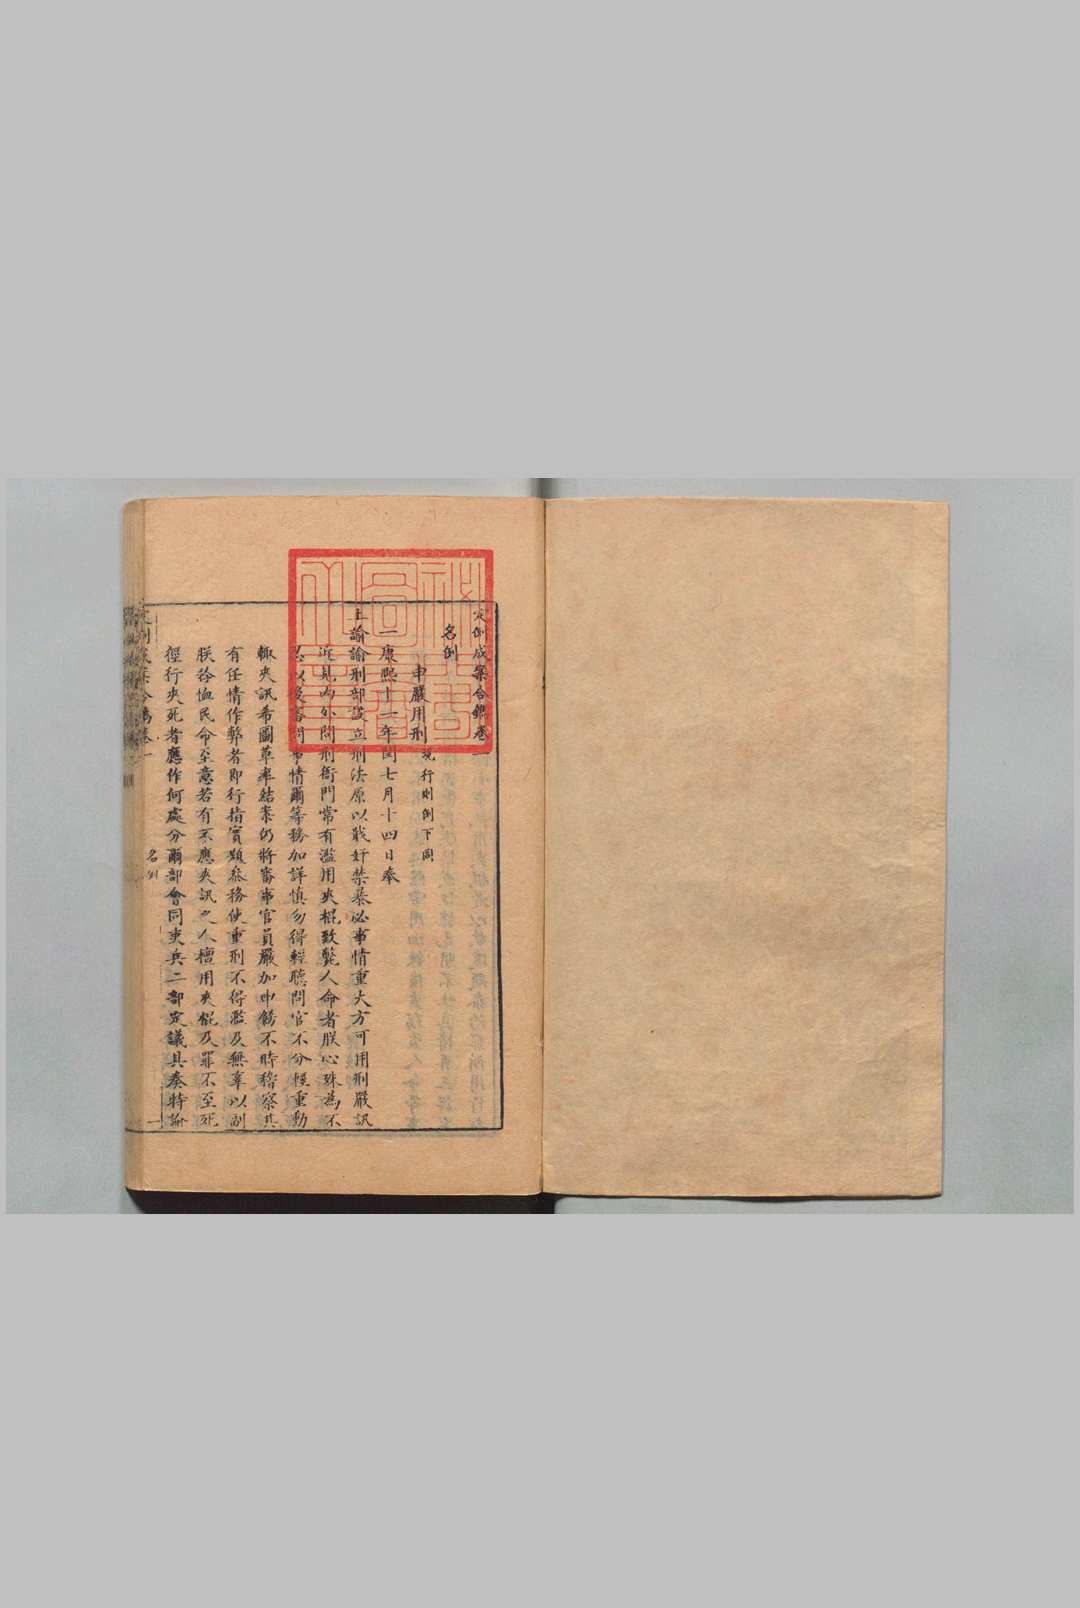 定例成案合鐫卷一
名例
申嚴用刑 現行則例下同
一康熙十二年閏七月十四日奉
上諭諭刑部設立刑法原以戢奸禁暴必事情重大方可用刑嚴訊
近見內外問刑衙門常有濫用夾棍致斃人命者朕心殊為不
忍以後審問事情爾等務加詳慎勿得輕聽問官不分輕重動
輒夾訊希圖草率結案仍將審事官員嚴加申飭不時稽察其
有任情作弊者即行指實題參務使重刑不得濫及無辜以副
朕矜恤民命至意若有不應夾訊之人擅用夾棍及罪不至死
徑行夾死者應作何處分爾部會同吏兵二部定議具奏特諭
名例
一